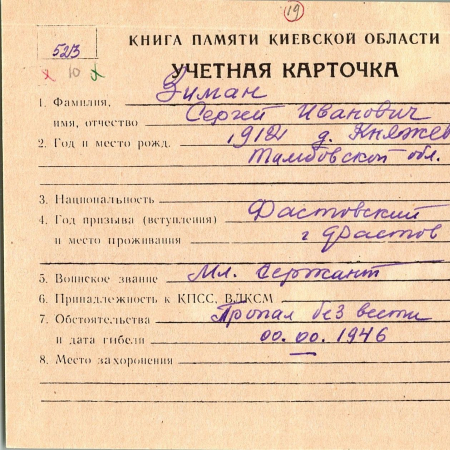 19
523
10
КНИГА ПАМЯТИ КИЕВСКОЙ ОБЛАСТИ
УЧЕТНАЯ КАРТОЧКА
1. Фамилия, Зиман
имя, отчество Сергей Иванович
2. Год и место рожд. д. Княжев
Тамбовской обл.
3. Национальность
4. Год призыва (вступления) Фастовский
и место проживания г Фастов
5. Воинское звание Мл. сержант
6. Принадлежность к КПСС, ВЛКСМ
7. Обстоятельства Пропал без вести
и дата гибели 00.00.1946
8. Место захоронения